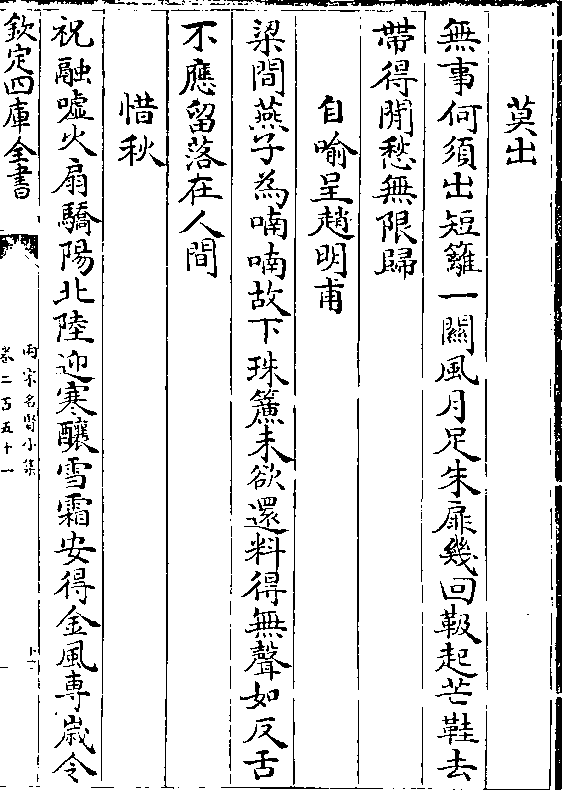 莫出
無事何須出短籬一闗風月足朱扉幾回靸起芒鞋去
帶得閒愁無限歸
自喻呈趙明甫
梁間燕子為喃喃故下珠簾未欲還料得無聲如反舌
不應留落在人間
惜秋
祝融嘘火扇驕陽北陸迎寒釀雪霜安得金風専嵗令
欽定四庫全書
兩宋名賢小集
卷二百五十一